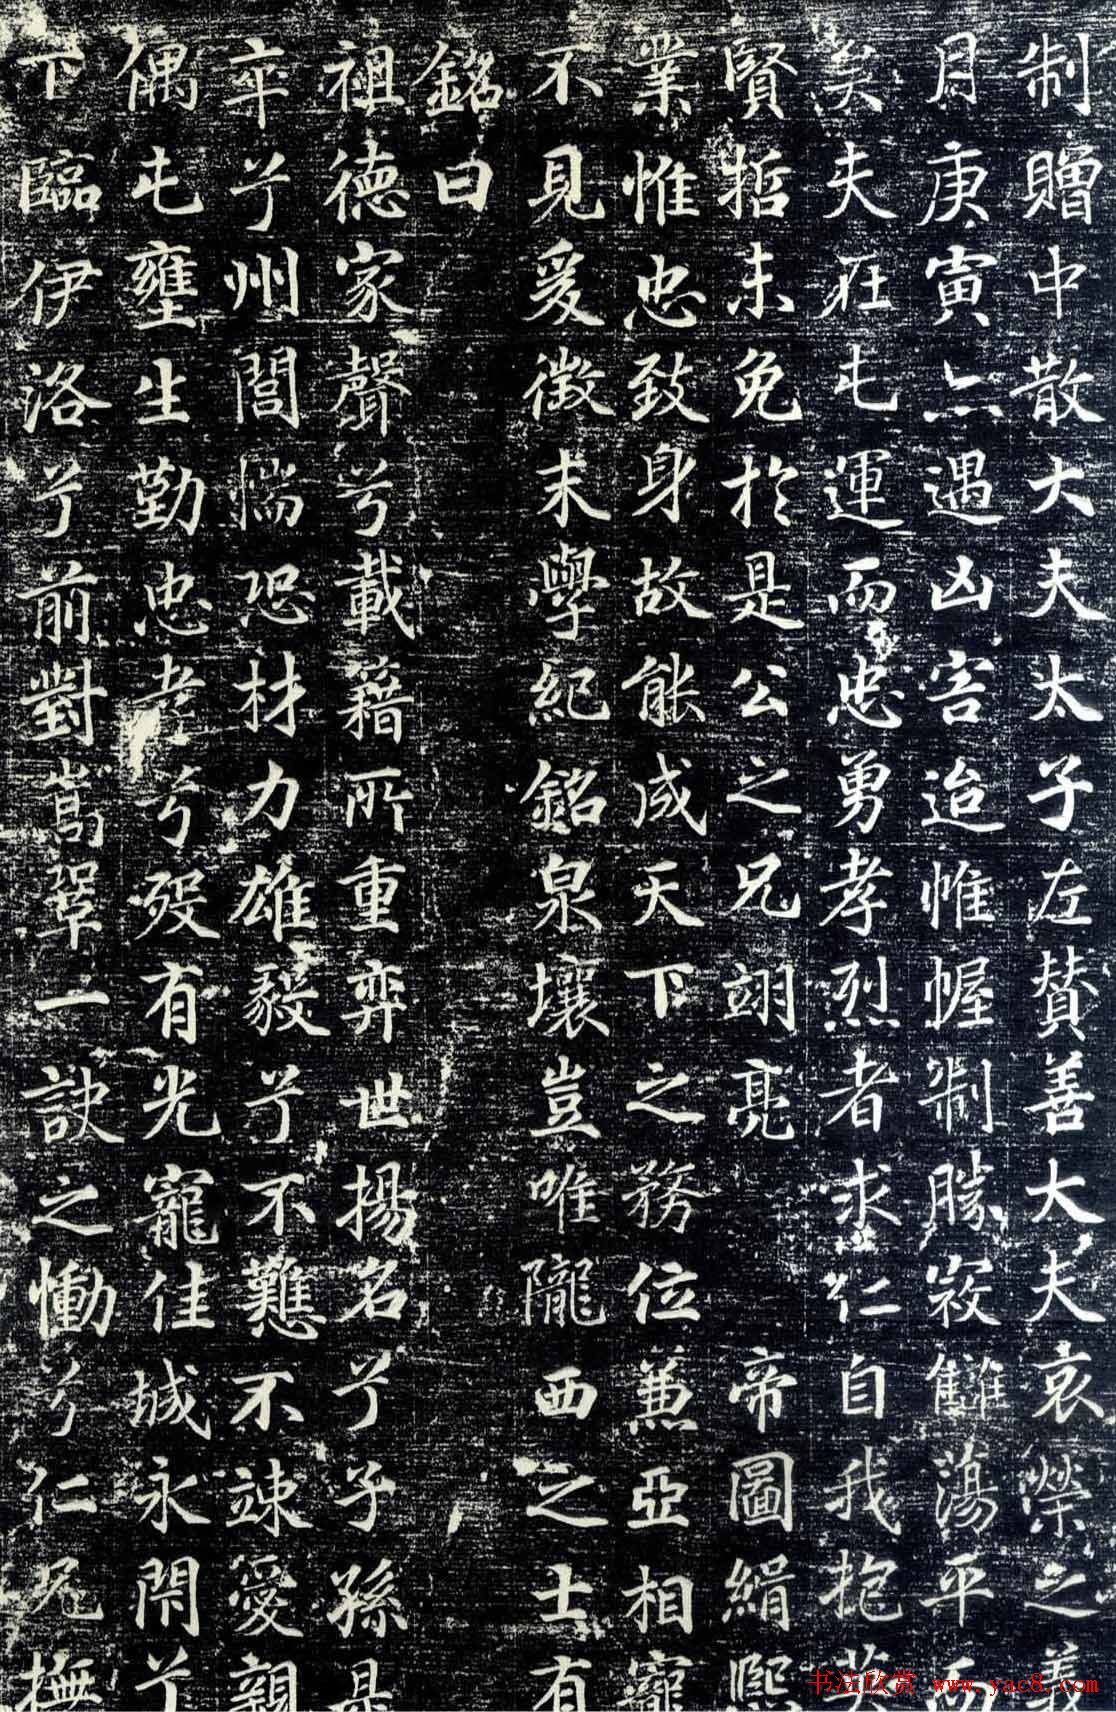 制贈中散大夫太子左贊善大夫哀榮之義
月庚寅亦遇凶害迨惟幄制勝寇讎蕩平而
矣夫在屯運而忠勇孝烈者求仁自我抱英
賢哲未免於是公之兄翊亮帝圖緝熙
業惟忠致身故能成天下之務位兼亞相寵
不見爰徵末學紀銘泉壤豈唯隴西之士有
銘曰
祖德家聲兮載籍所重弈世揚名兮子孫是
卒兮州閭惴恐材力雄毅兮不難不竦愛親
偶屯壅生勤忠孝兮歿有光寵佳城永閇兮
下臨伊洛兮前對嵩鞏一訣之慟兮仁兄撫
书法欣赏 www.yac8.com